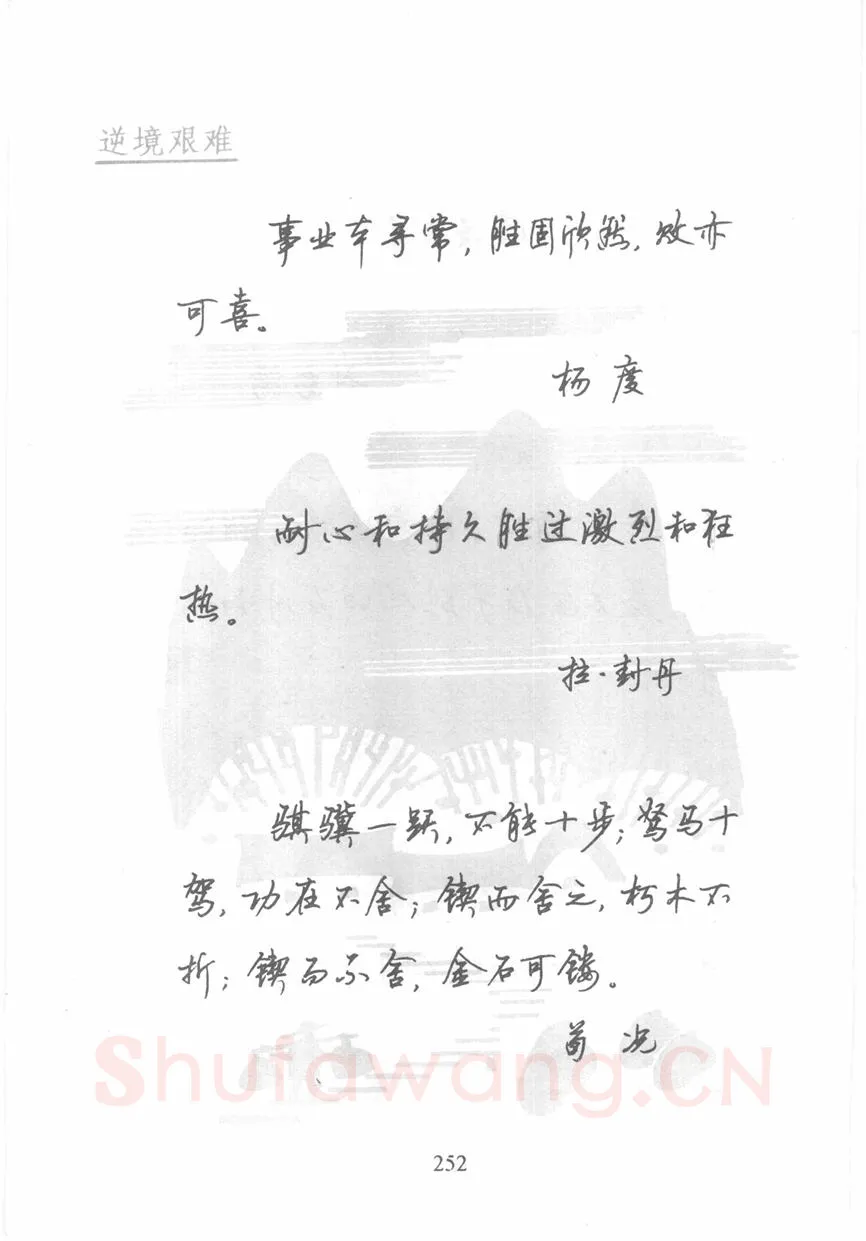 逆境艰难
事业本寻常，胜固欣然，败亦
可喜。
杨度
耐心和持久胜过激烈和狂
热。
拉·封丹
骐骥一跃，不能十步；驽马十
驾，功在不舍；锲而舍之，朽木不
折；锲而不舍，金石可镂。
荀况
Shufawang.CN
252